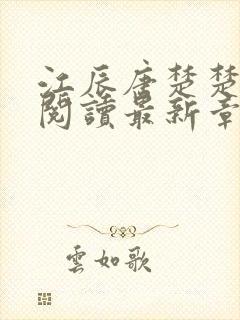 江辰唐楚楚
閱讀最新章
雲如歌